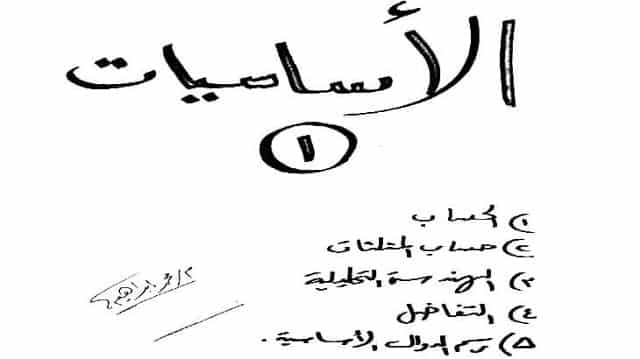 الأساسيات
١
١) الحساب
٢) حساب المثلثات
٣) الهندسة التحليلية
٤) التفاضل
٥) رسم الدوال الأساسية.